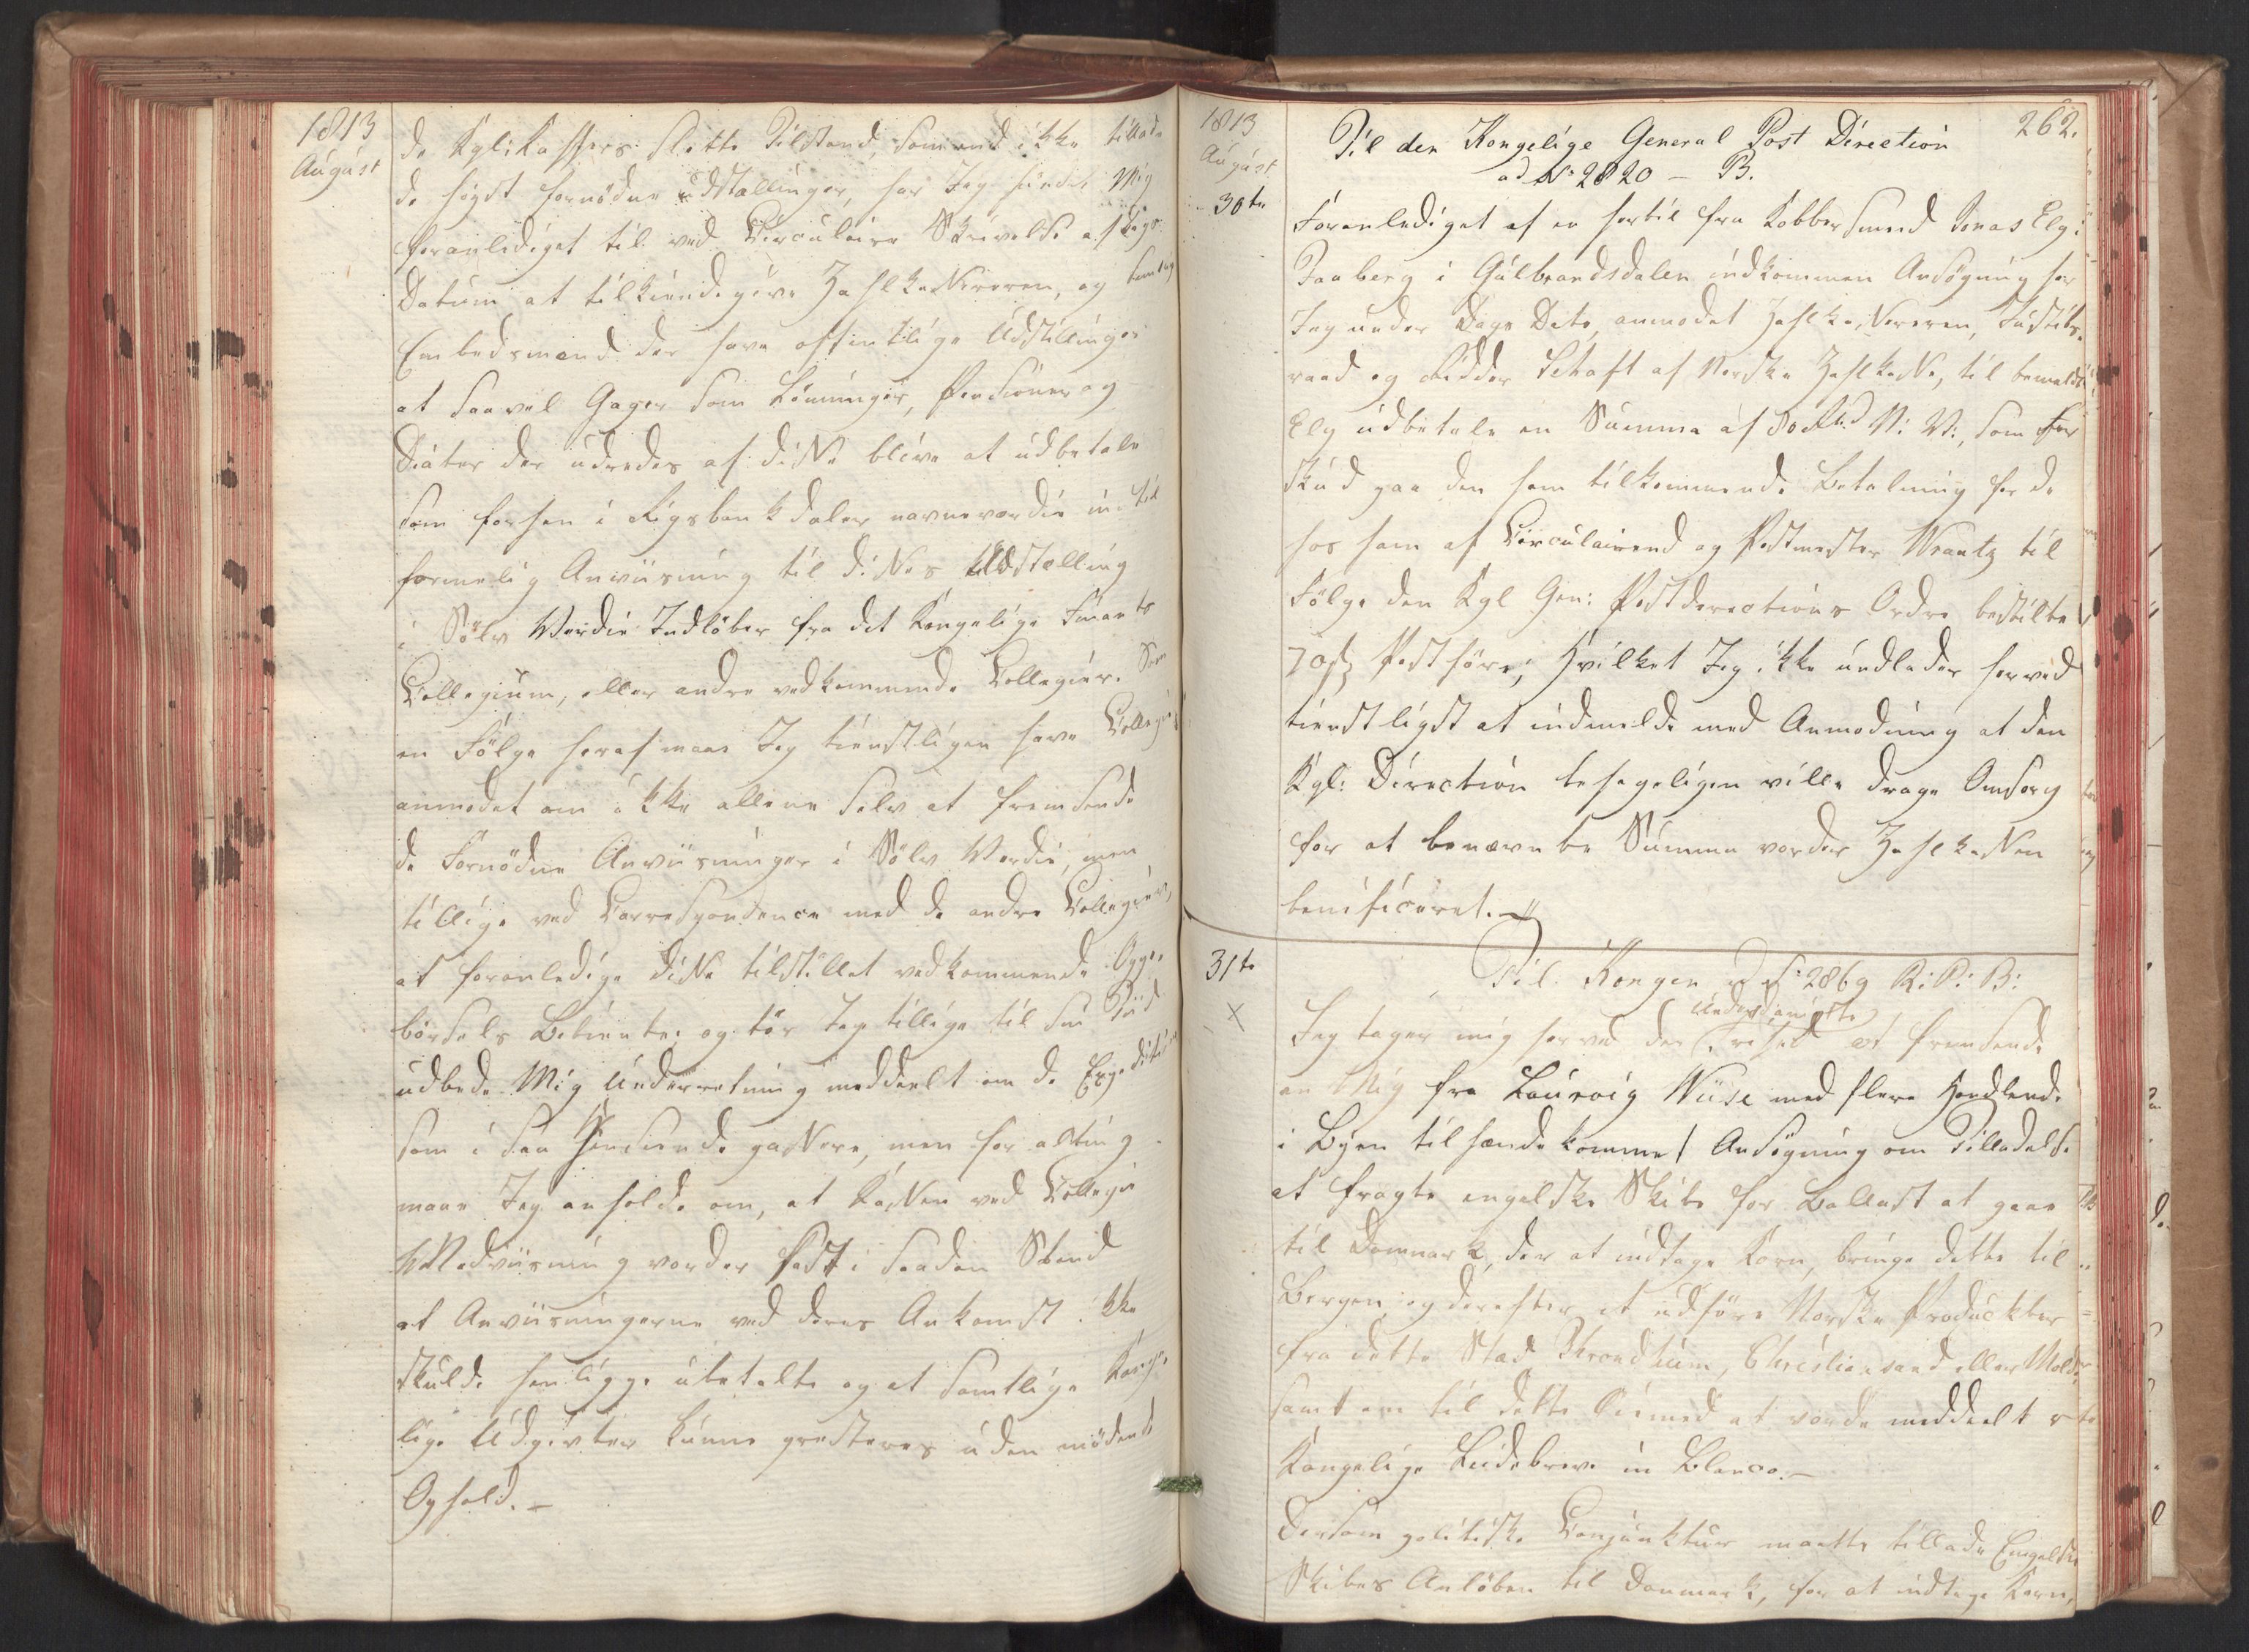 1813
August
de Kgl: Kassers slette Tilstand, som end ikke tillade
de høist fornødne udstællinger, har Jeg fundet Mig
foranlediget til ved Circulaire Skrivelse af Dags
Datum at tilkiendegive Zahlkassereren, og
Embedsmænd der have offentlige Udstillinger
at saavel Gager som Lønninger, Pensioner og
Diæter der udredes af disse blive at udbetale
som forhen i Rigsbankdaler navneværdie ind til
formelig Anviisning til disses Udstælling
i Sølv Werdie Indløber fra det Kongelige Finants
Collegium, eller andre vedkommende Collegier. Som
en Følge heraf maae Jeg tienstligen have Collegiet
anmodet om ikke allene selv at fremsende
de Fornødne Anviisninger i Sølv Werdie, men
tillige ved Correspondence med de andre Collegier,
at foranledige disse tilstillet vedkommende Oppe-
børsels Betiente; og tør Jeg tillige til sin Tiid
udbede Mig Underretning meddeelt om de Expeditioner
som i saa Henseende passere, men for alting
maae Jeg anholde om, at Kassen ved Collegii
Medviisning vorder sadt i saadan Stand
at Anviisningerne ved deres Ankomst ikke
skulde henligge ubetalte og at samtlige
lige Udgivter kunne præsteres uden mødende
Ophold. –
1813
August
30te
262.
Til den Kongelige General Post Direction
ad No 2820 – B.
Foranlediget af en hertil fra Kobbersmed Jonas Ely i
Faaberg i Gulbrandsdalen indkommen Ansøgning har
Jeg under Dags Dato, anmodet Zahlkasserern, Justits-
raad og Ridder Schaft af Norske Zahlkasse, til bemeldte
Ely udbetale en Summa af 80 Rbd N: V:, som For
skud paa den ham tilkommende Betaling for de
hos ham af og Postmester Wrantz til
Følge den Kgl Gen: Postdirections Ordre bestilte
70 st Posthorn; hvilket Jeg ikke undlader herved
tienstligst at indmelde med Anmodning at den
Kgl: Direction behageligen ville drage Omsorg
for at benævnte Summa vorder Zahlkassen
beneficeret.
31te
X
Til Kongen ad No 2869 R: P: B:
Underdanigste
Jeg tager mig herved den Frihed at fremsende
en Mig fra Laurvig Wiise med flere Handlende
i Byen tilhændekommet Ansøgning om Tilladelse
at fragte engelske Skibe for Ballast at gaae
til Danmark, der at indtage Korn, bringe dette til
Bergen, og derefter at udføre Norske Produckter
fra dette Stæd, Throndhiem, Christiansand eller Molde
samt om til dette Øiemed at vorde meddeelt
Kongelige Leidebreve in Blanco. –
Dersom politiske Conjunktur maatte tillade Engelske
Skibes Anløben til Danmark, for at indtage Korn,